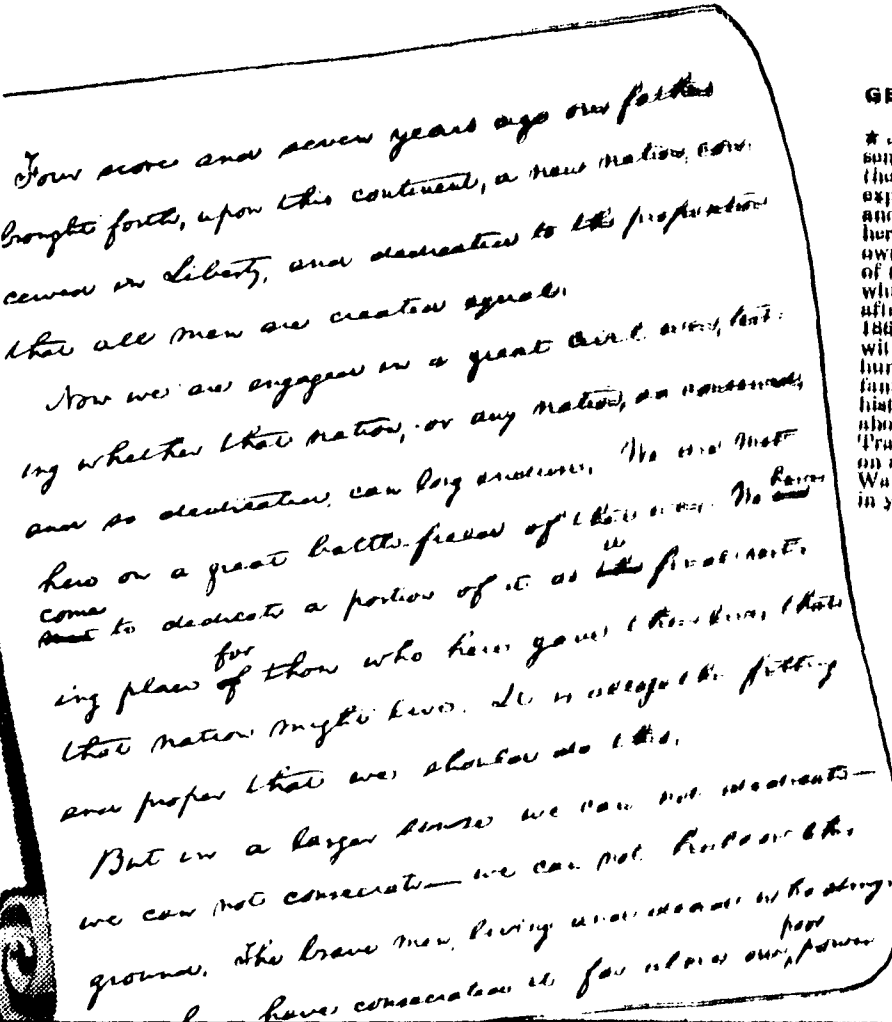 Four score and seven years ago our fathers
brought forth, upon this continent, a new nation, con-
ceived in Liberty, and dedicated to the proposition
that all men are created equal.
Now we are engaged in a great civil war, test-
ing whether that nation, or any nation, so conceived,
and so dedicated, can long endure. We are met
here on a great battle-field of that war. We have
come to dedicate a portion of it as a final rest-
ing place for those who here gave their lives that
that nation might live. It is altogether fitting
and proper that we should do this.
But in a larger sense we can not dedicate—
we can not consecrate— we can not hallow this
ground. The brave men, living and dead, who strug-
have consecrated it far above our poor power
GE
sun
exp
and
hun
own
of
whi
afte
186
wil
hun
fam
hist
abo
Tra
on
Wa
in y